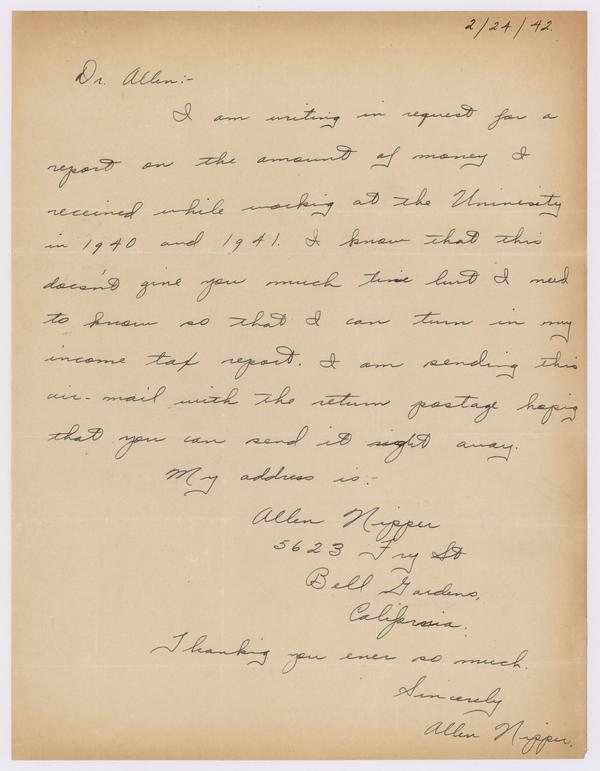 2/24/42.
Dr. Allen:-
I am writing in request for a
report on the amount of money I
received while working at the Univiersity
in 1940 and 1941. I know that this
doesn't give you much time but I need
to know so that I can turn in my
income tax report. I am sending this
air-mail with the return postage hopig
that you can send it right away.
My address is:-
Allen Nipper
5623 Fry St
Bell Gardens,
California.
Thanking you ever so much.
Sincerely
Allen Nipper.